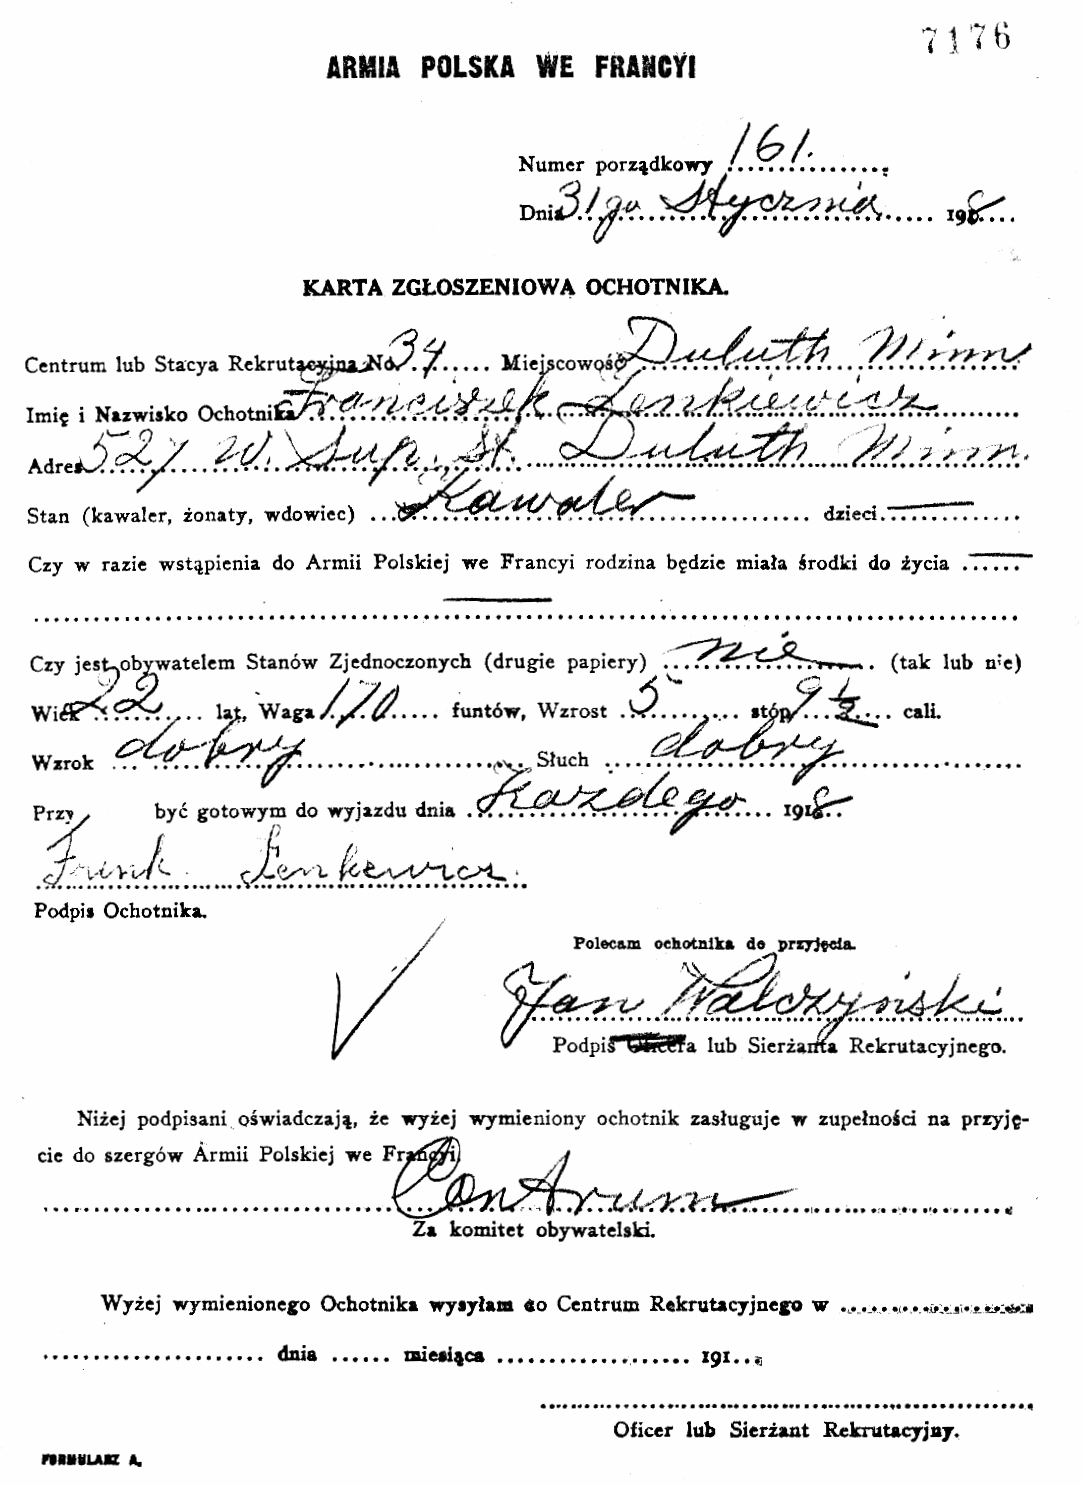 7176
ARMIA POLSKA WE FRANCYI
Numer porządkowy 161.
Dnia 31go Stycznia 1918
KARTA ZGŁOSZENIOWA OCHOTNIKA.
Centrum lub Stacya Rekrutacyjna No. 34 Miejscowość Duluth Minn.
Imię i Nazwisko Ochotnika Franciszek Lenkiewicz
Adres 527 W. Sup. St. Duluth Minn.
Stan (kawaler, żonaty, wdowiec) Kawaler dzieci —
Czy w razie wstąpienia do Armii Polskiej we Francyi rodzina będzie miała środki do życia —
—
Czy jest obywatelem Stanów Zjednoczonych (drugie papiery) nie (tak lub nie)
Wiek 22 lat, Waga 170 funtów, Wzrost 5 stóp 9 ½ cali.
Wzrok dobry Słuch dobry
Przy być gotowym do wyjazdu dnia Każdego 1918
Frenk Lenkewicz.
Podpis Ochotnika.
Polecam ochotnika do przyjęcia.
Jan Walczyński
Podpis Oficera lub Sierżanta Rekrutacyjnego.
Niżej podpisani oświadczają, że wyżej wymieniony ochotnik zasługuje w zupełności na przyję-
cie do szergów Armii Polskiej we Francyi
Centrum
Za komitet obywatelski.
Wyżej wymienionego Ochotnika wysyłam do Centrum Rekrutacyjnego w
dnia miesiąca 191
Oficer lub Sierżant Rekrutacyjny.
FORMULARZ A.